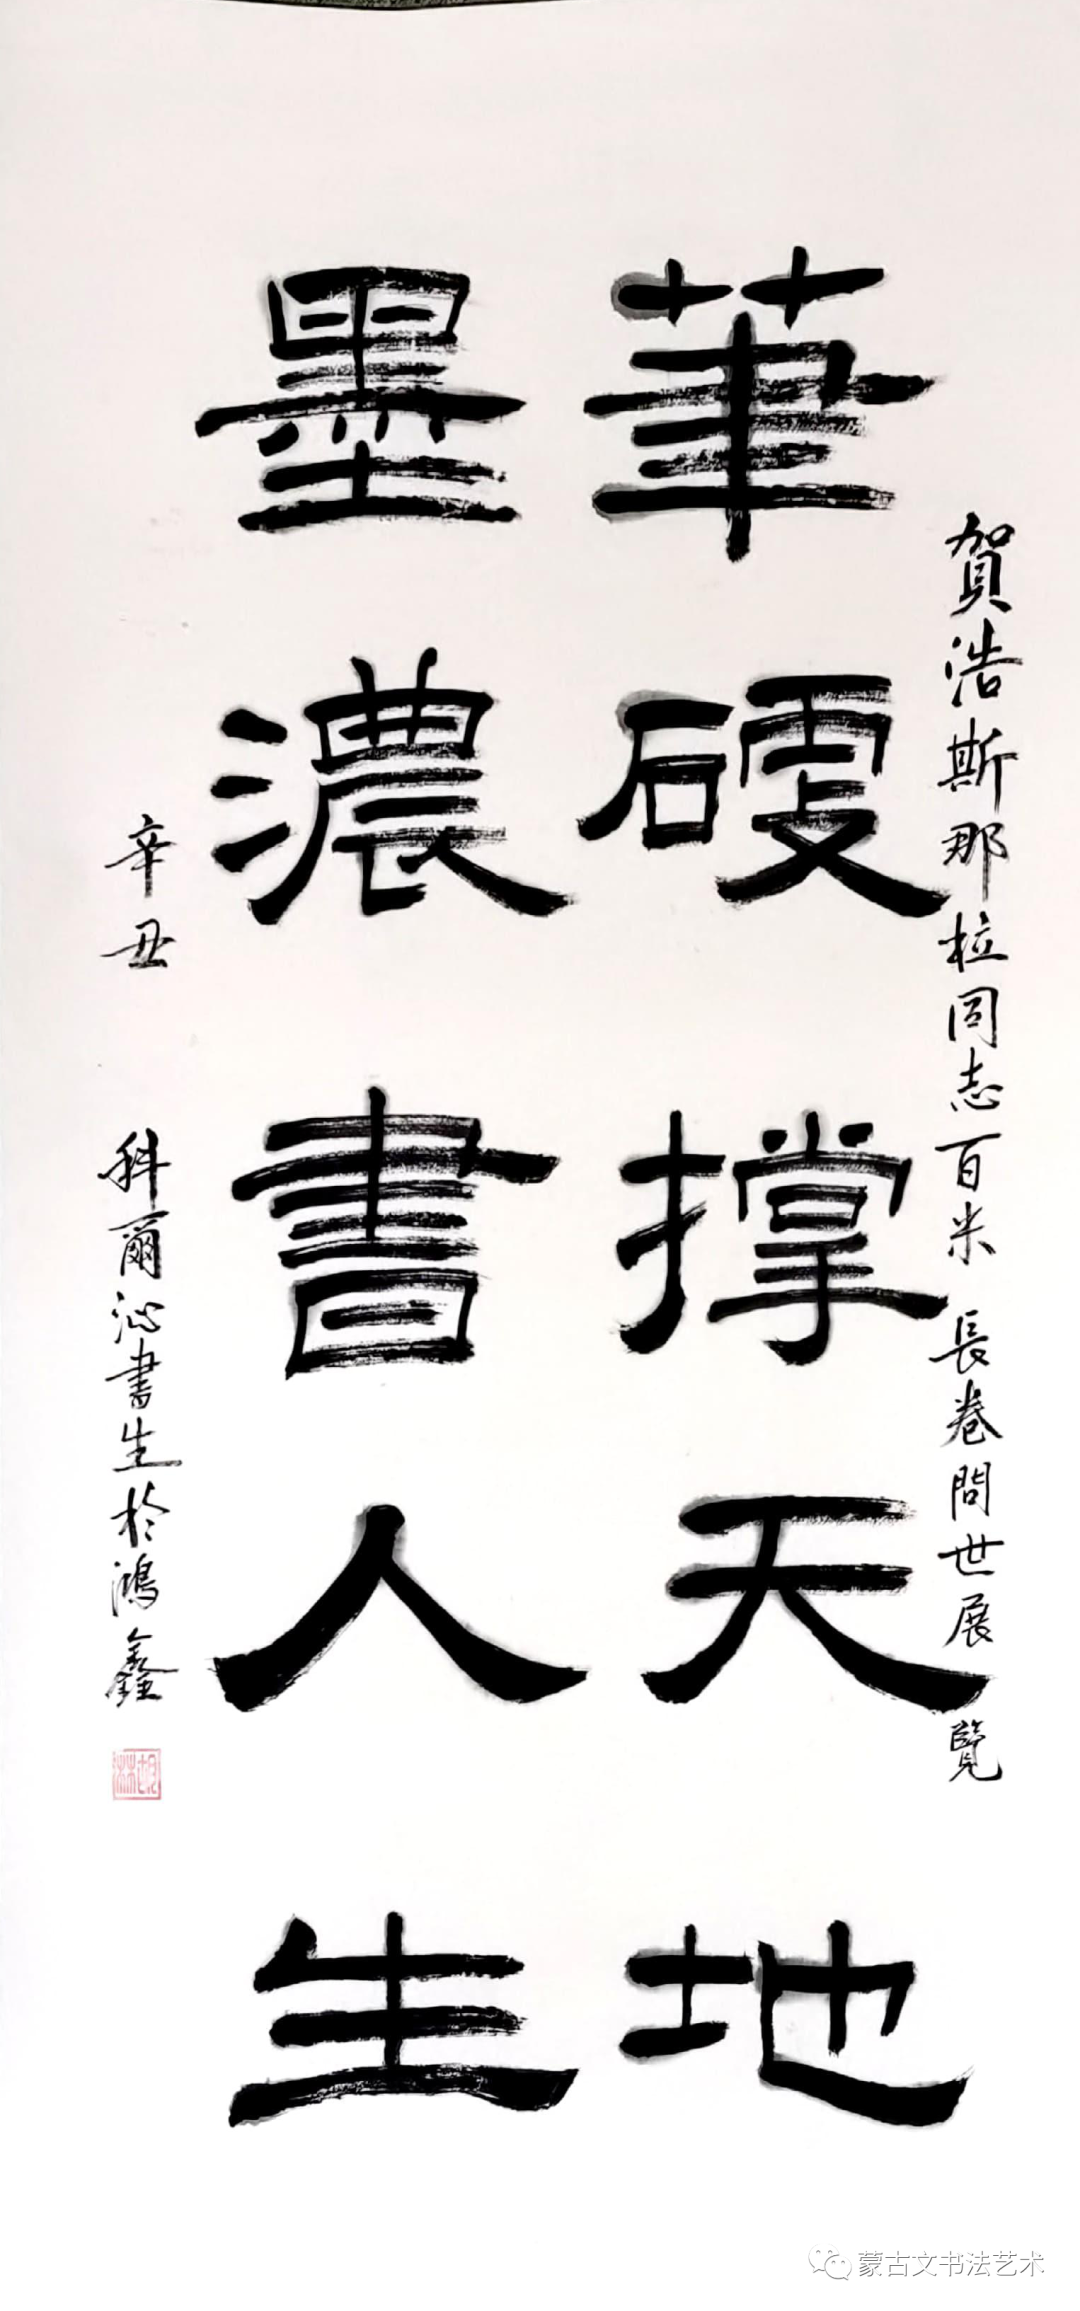 賀浩斯那拉同志百米長卷問世展覽
筆硬撐天地
墨濃書人生
辛丑
科爾沁書生於鴻鑫
蒙古文书法艺术